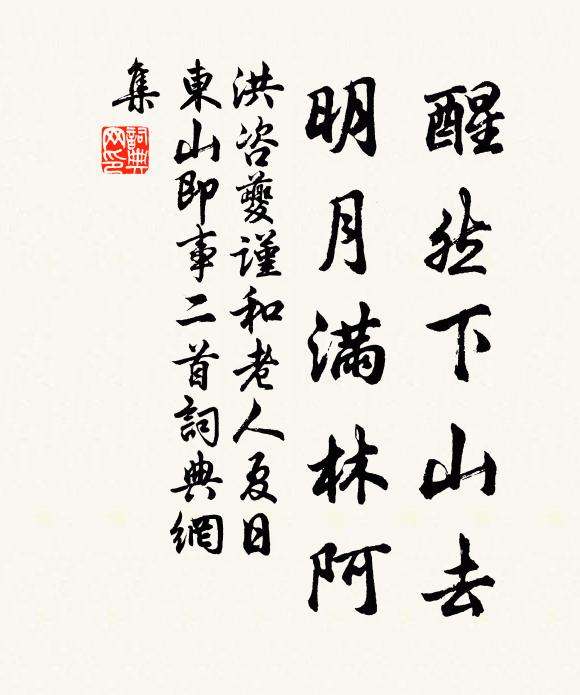 醒然下山去
明月滿林阿
洪咨夔謹和老人夏日
東山即事二首詞典網
集
詞典
网印